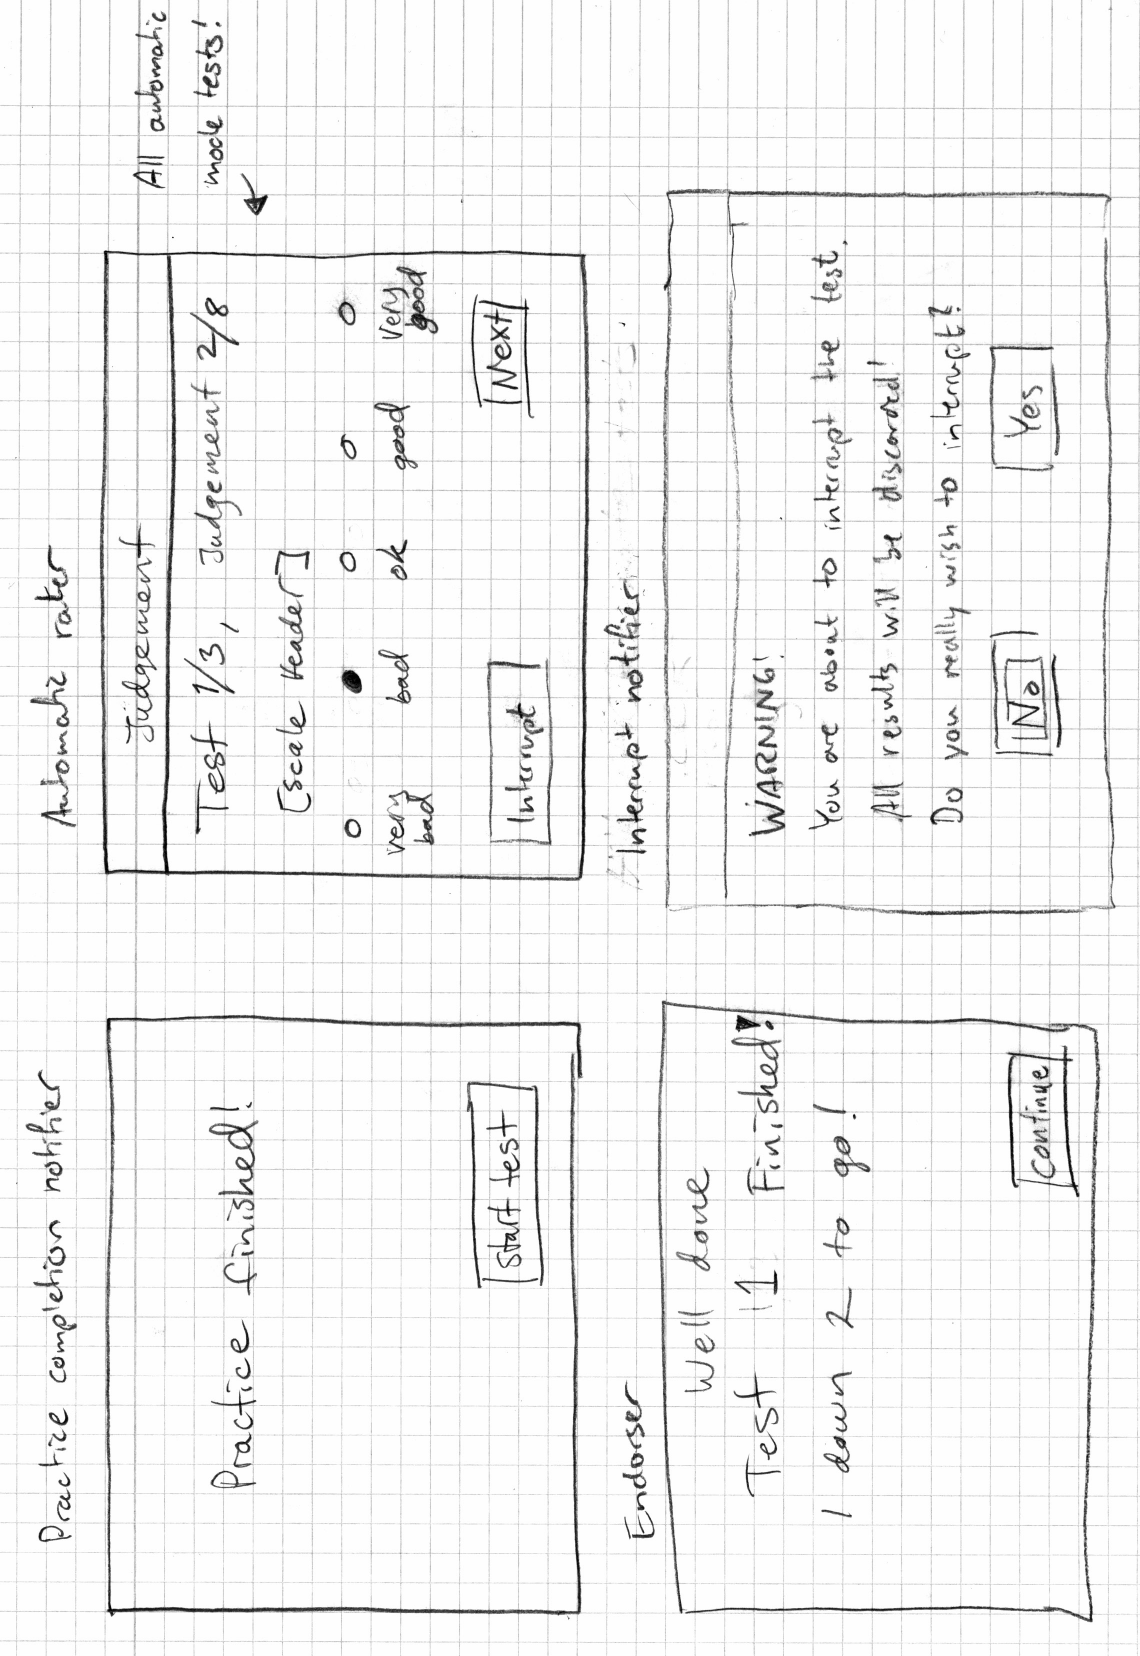 Practice completion notifier
Practice finished!
Start test
Automatic rater
Judgement
Test 1/3, Judgement 2/8
[Scale Header]
very bad
bad
ok
good
very good
Interrupt
Next
All automatic
mode tests!
Endorser
Well done
Test 1 Finished!
1 down 2 to go!
Continue
Interrupt notifier
WARNING!
You are about to interrupt the test.
All results will be discarded!
Do you really wish to interrupt?
No
Yes